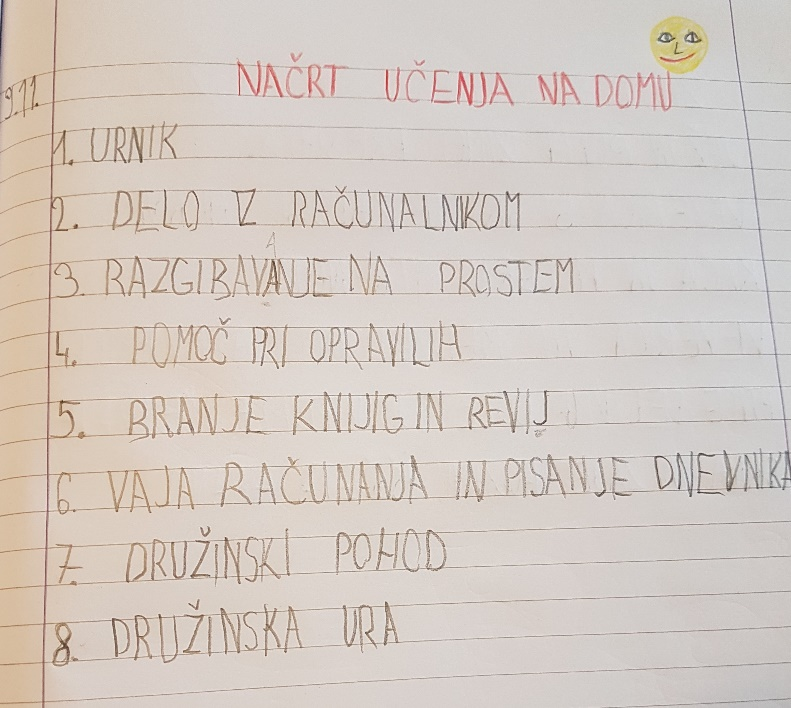 9.11.
NAČRT UČENJA NA DOMU
1. URNIK
2. DELO Z RAČUNALNIKOM
3. RAZGIBAVANJE NA PROSTEM
4. POMOČ PRI OPRAVILIH
5. BRANJE KNJIG IN REVIJ
6. VAJA RAČUNANJA IN PISANJE DNEVNIKA
7. DRUŽINSKI POHOD
8. DRUŽINSKA URA